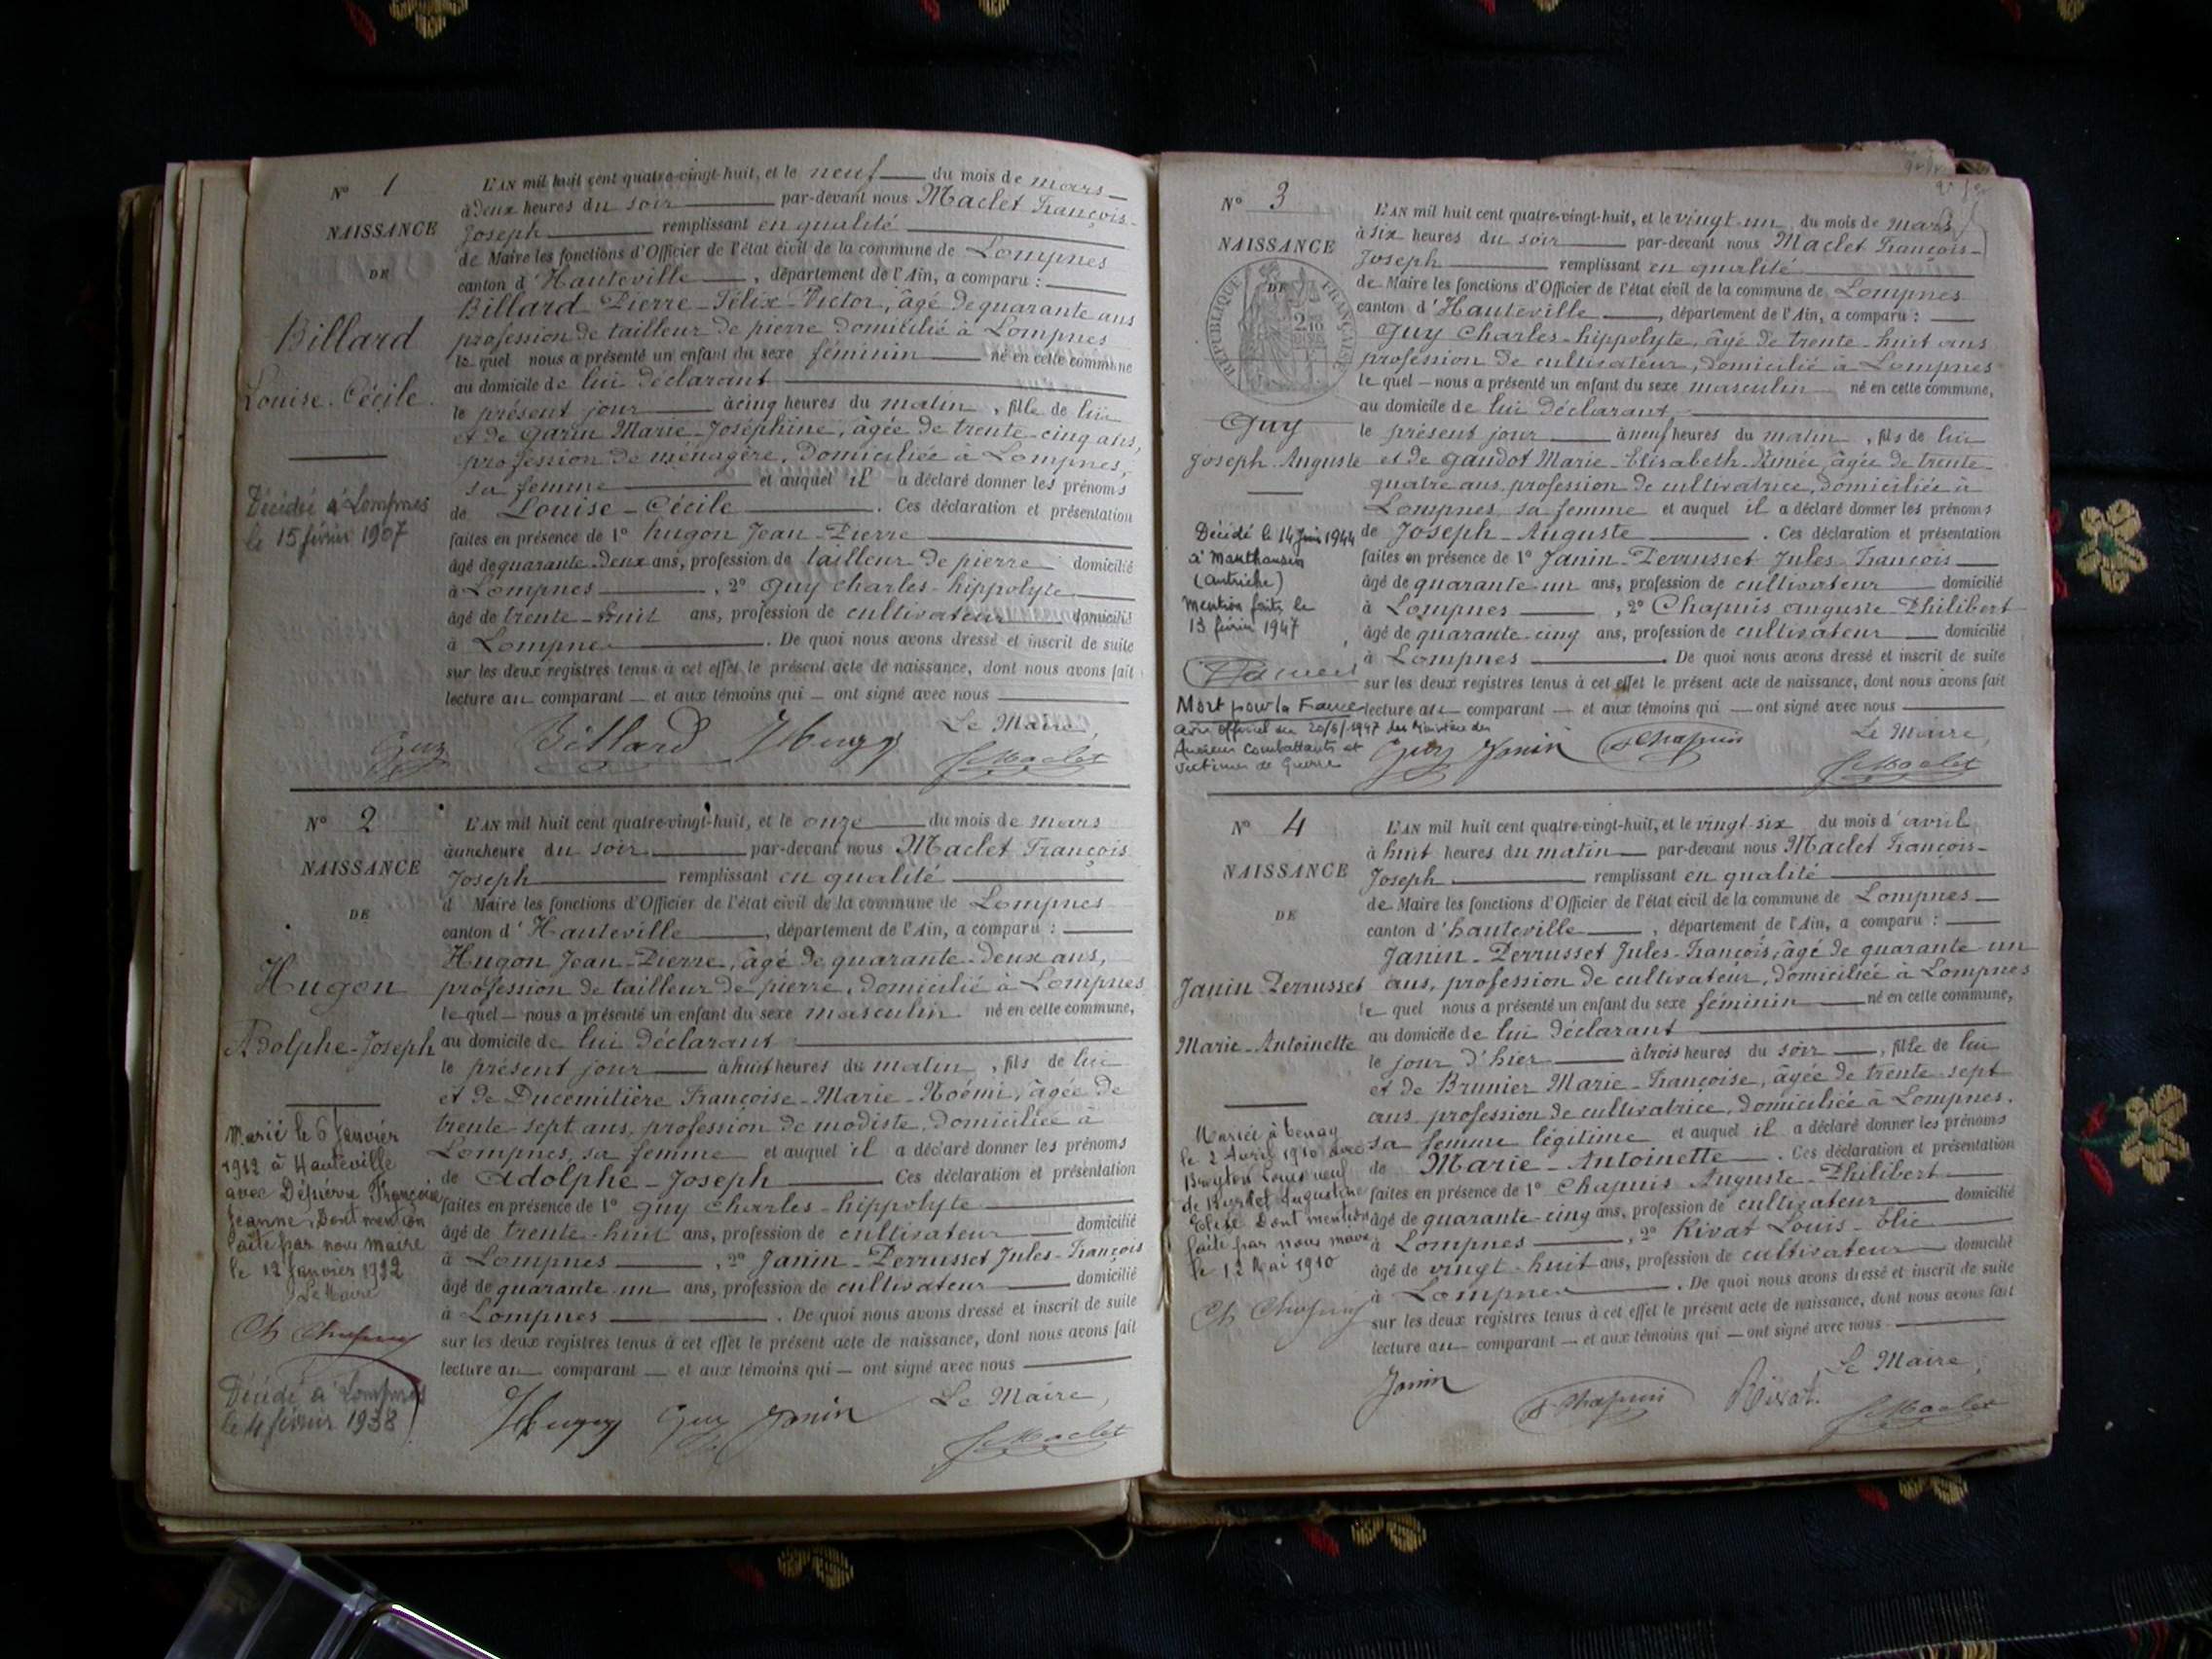 N° 1
NAISSANCE
DE
Billard
Louise-Cécile
Décédée à Lompnes
le 15 février 1907
L'AN mil huit cent quatre-vingt-huit, et le neuf du mois de mars
à deux heures du soir par-devant nous Maclet François-
Joseph remplissant en qualité
de Maire les fonctions d'Officier de l'état civil de la commune de Lompnes
canton d'Hauteville, département de l'Ain, a comparu :
Billard Pierre-Félix-Victor, âgé de quarante ans
profession de tailleur de pierre domicilié à Lompnes
lequel nous a présenté un enfant du sexe féminin né en cette commune
au domicile de lui déclarant
le présent jour à cinq heures du matin, fille de lui
et de Garin Marie-Joséphine, âgée de trente-cinq ans,
profession de ménagère, domiciliée à Lompnes,
sa femme et auquel il a déclaré donner les prénoms
de Louise-Cécile. Ces déclaration et présentation
faites en présence de 1° hugon Jean-Pierre
âgé de quarante-deux ans, profession de tailleur de pierre domicilié
à Lompnes, 2° Guy charles-hippolyte
âgé de trente-huit ans, profession de cultivateur domicilié
à Lompnes. De quoi nous avons dressé et inscrit de suite
sur les deux registres tenus à cet effet le présent acte de naissance, dont nous avons fait
lecture au comparant — et aux témoins qui — ont signé avec nous
Le Maire,
Guy Billard JHugon JMaclet
N° 2
NAISSANCE
DE
Hugon
Adolphe-Joseph
Marié le 6 Janvier
1912 à Hauteville
avec Dépierre Françoise
Jeanne, Dont mention
faite par nous maire
le 12 Janvier 1912
Le Maire
Ch Chapuis
Décédé à Lompnes
le 4 février 1938
L'AN mil huit cent quatre-vingt-huit, et le onze du mois de mars
à une heure du soir par-devant nous Maclet François
Joseph remplissant en qualité
d Maire les fonctions d'Officier de l'état civil de la commune de Lompnes
canton d'Hauteville, département de l'Ain, a comparu :
Hugon Jean-Pierre, âgé de quarante-deux ans,
profession de tailleur de pierre, domicilié à Lompnes
lequel — nous a présenté un enfant du sexe masculin né en cette commune,
au domicile de lui déclarant
le présent jour à huit heures du matin, fils de lui
et de Ducemilière Françoise-Marie-Noémi, âgée de
trente-sept ans, profession de modiste, domiciliée à
Lompnes, sa femme et auquel il a déclaré donner les prénoms
de Adolphe-Joseph Ces déclaration et présentation
faites en présence de 1° Guy charles-hippolyte
âgé de trente-huit ans, profession de cultivateur domicilié
à Lompnes, 2° Janin-Perrusset Jules-François
âgé de quarante-un ans, profession de cultivateur domicilié
à Lompnes. De quoi nous avons dressé et inscrit de suite
sur les deux registres tenus à cet effet le présent acte de naissance, dont nous avons fait
lecture au comparant — et aux témoins qui — ont signé avec nous
Le Maire,
JHugon Guy Janin JMaclet
N° 3
NAISSANCE
DE
RÉPUBLIQUE FRANÇAISE
Guy
Joseph-Auguste
Décédé le 14 Juin 1944
à Mauthausen
(Autriche)
mention faite le
13 février 1947
Mort pour la France
avis officiel du 20/6/1947 des Ministère des
Anciens Combattants et
victimes de Guerre
L'AN mil huit cent quatre-vingt-huit, et le vingt-un du mois de mars
à six heures du soir par-devant nous Maclet François-
Joseph remplissant en qualité
de Maire les fonctions d'Officier de l'état civil de la commune de Lompnes
canton d'Hauteville, département de l'Ain, a comparu :
Guy Charles-hippolyte, âgé de trente-huit ans
profession de cultivateur, domicilié à Lompnes
lequel — nous a présenté un enfant du sexe masculin né en cette commune,
au domicile de lui déclarant
le présent jour à neuf heures du matin, fils de lui
et de Gaudot Marie-Elisabeth-Aimée, âgée de trente-
quatre ans, profession de cultivatrice, domiciliée à
Lompnes, sa femme et auquel il a déclaré donner les prénoms
de Joseph-Auguste. Ces déclaration et présentation
faites en présence de 1° Janin-Perrusset Jules-François
âgé de quarante-un ans, profession de cultivateur domicilié
à Lompnes, 2° Chapuis auguste-Philibert
âgé de quarante-cinq ans, profession de cultivateur domicilié
à Lompnes. De quoi nous avons dressé et inscrit de suite
sur les deux registres tenus à cet effet le présent acte de naissance, dont nous avons fait
lecture au comparant — et aux témoins qui — ont signé avec nous
Le Maire,
Guy Janin AChapuis JMaclet
N° 4
NAISSANCE
DE
Janin-Perrusset
Marie-Antoinette
Mariée à Tenay
le 2 Avril 1910 avec
Louis veuf
de Augustine
Elise Dont mention
faite par nous maire
le 12 Mai 1910
Ch Chapuis
L'AN mil huit cent quatre-vingt-huit, et le vingt-six du mois d'avril
à huit heures du matin par-devant nous Maclet François-
Joseph remplissant en qualité
de Maire les fonctions d'Officier de l'état civil de la commune de Lompnes
canton d'hauteville, département de l'Ain, a comparu :
Janin-Perrusset Jules-François, âgé de quarante un
ans, profession de cultivateur, domicilié à Lompnes
lequel nous a présenté un enfant du sexe féminin né en cette commune,
au domicile de lui déclarant
le jour d'hier à trois heures du soir, fille de lui
et de Brunier Marie-Françoise, âgée de trente-sept
ans, profession de cultivatrice, domiciliée à Lompnes,
sa femme légitime et auquel il a déclaré donner les prénoms
de Marie-Antoinette. Ces déclaration et présentation
faites en présence de 1° Chapuis Auguste-Philibert
âgé de quarante-cinq ans, profession de cultivateur domicilié
à Lompnes, 2° Rivat Louis-Elie
âgé de vingt-huit ans, profession de cultivateur domicilié
à Lompnes. De quoi nous avons dressé et inscrit de suite
sur les deux registres tenus à cet effet le présent acte de naissance, dont nous avons fait
lecture au — comparant — et aux témoins qui — ont signé avec nous
Le Maire,
Janin AChapuis Rivat JMaclet